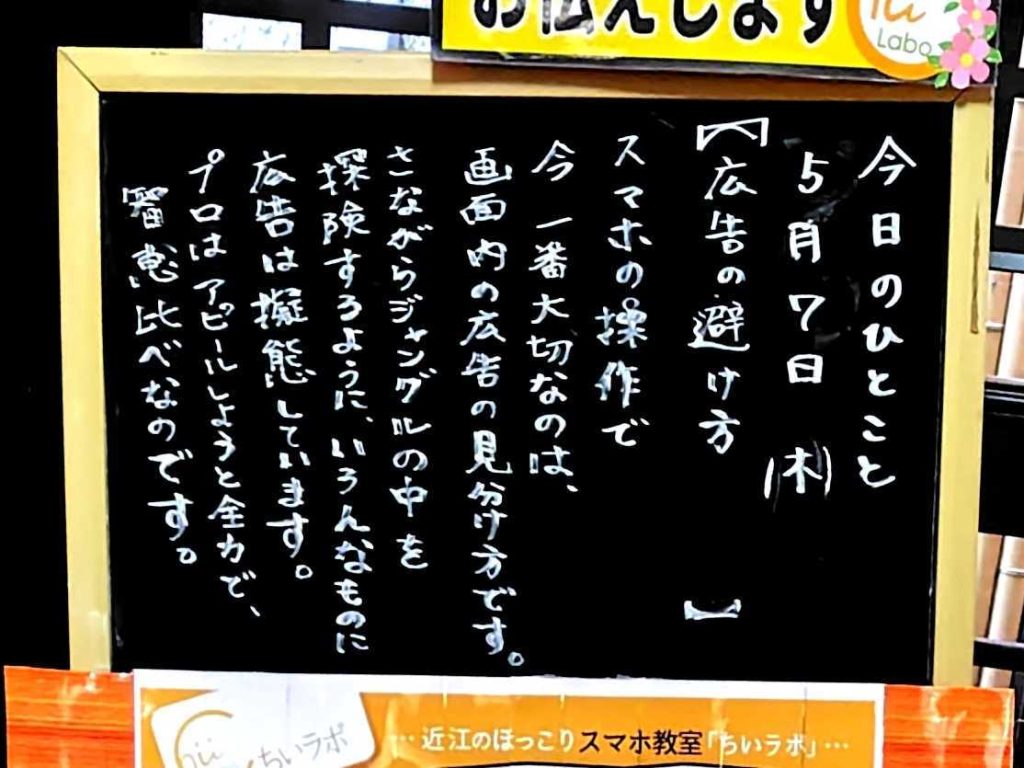 お伝えします
Labo
今日のひとこと
5月7日(木)
【広告の避け方】
スマホの操作で
今一番大切なのは、
画面内の広告の見分け方です。
さながらジャングルの中を
探険するように、いろんなものに
広告は擬態しています。
プロはアピールしようと全力で、
智恵比べなのです。
ちいラボ
…近江のほっこりスマホ教室「ちいラボ」…